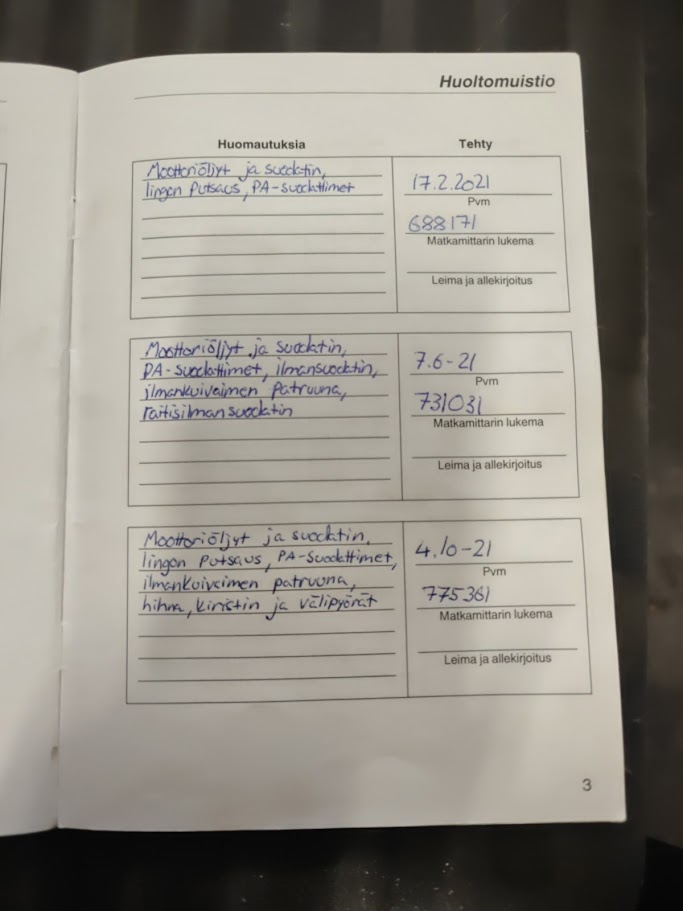 Huoltomuistio
Huomautuksia
Tehty
Moottoriöljyt ja suodatin,
lingon putsaus, PA-suodattimet
17.2.2021
Pvm
688171
Matkamittarin lukema
Leima ja allekirjoitus
Moottoriöljyt ja suodatin,
PA-suodattimet, ilmansuodatin,
ilmankuivaimen patruuna,
raitisilmansuodatin
7.6-21
Pvm
731031
Matkamittarin lukema
Leima ja allekirjoitus
Moottoriöljyt ja suodatin,
lingon putsaus, PA-suodattimet,
ilmankuivaimen patruuna,
hihna, kiristin ja välipyörät
4.10-21
Pvm
775361
Matkamittarin lukema
Leima ja allekirjoitus
3